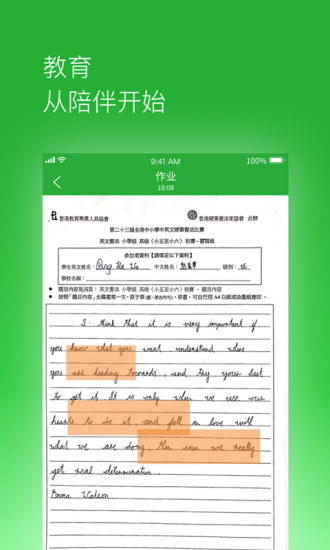 教育
从陪伴开始
9:41 AM
100%
作业
18:08
香港教育專業人員協會
香港硬筆書法家協會 合辦
第二十三屆全港中小學中英文硬筆書法比賽
英文書法 小學組 高級（小五至小六）初賽 - 習寫紙
參加者資料【請填妥以下資料】
學生英文姓名：Pang Ka Wa 中文姓名： 級別：
學校名稱：
題目內容見河頁： 英文書法 小學組 高級（小五至小六）初賽 - 題目內容
I think that it is very important if
you know what you want, understand where
you are heading towards, and try your best
to get it. It is only when we use our
hearts to do it, and fall in love with
what we are doing, then can we really
get real determination.
Emma Watson